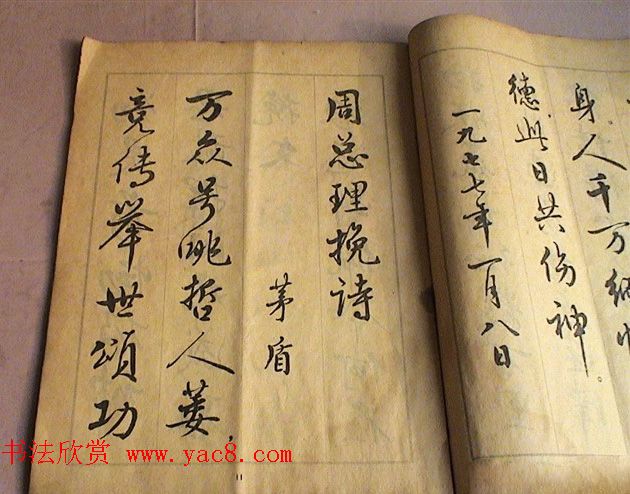 身。人千万
德。此日共伤神。
一九七七年一月八日
周总理挽诗
茅盾
万众号咷哲人萎，
竞传举世颂功
书法欣赏 www.yac8.com